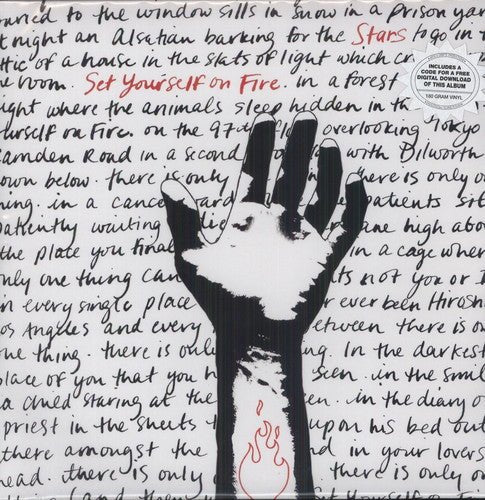 to the window sills in snow in a prison yar
t night an Alsatian barking for the Stars to go in t
ttic of a house in the slats of light which cr
he room. Set Yourself on Fire. in a forest
ight where the animals sleep hidden in th
urself on Fire. on the 97th fl overlooking Tokyo
Camden Road in a second with Dilworth
own below. there is only here is only o
hing. in a cance ard patients sit
patiently waiting die ane high abo
the place you final in a cage wher
nly one thing can ts not you or I
n every single place r ever been Hirosh
os Angeles and every etween there is o
ne thing. there is only ng. In the darkest
place of you that you h seen. in the smil
a child staring at the en. in the diary o
priest in the sheets t upon his bed out
there amongst the d in your lovers
head. there is only there is only o
INCLUDES A
CODE FOR A FREE
DIGITAL DOWNLOAD
OF THIS ALBUM
180 GRAM VINYL